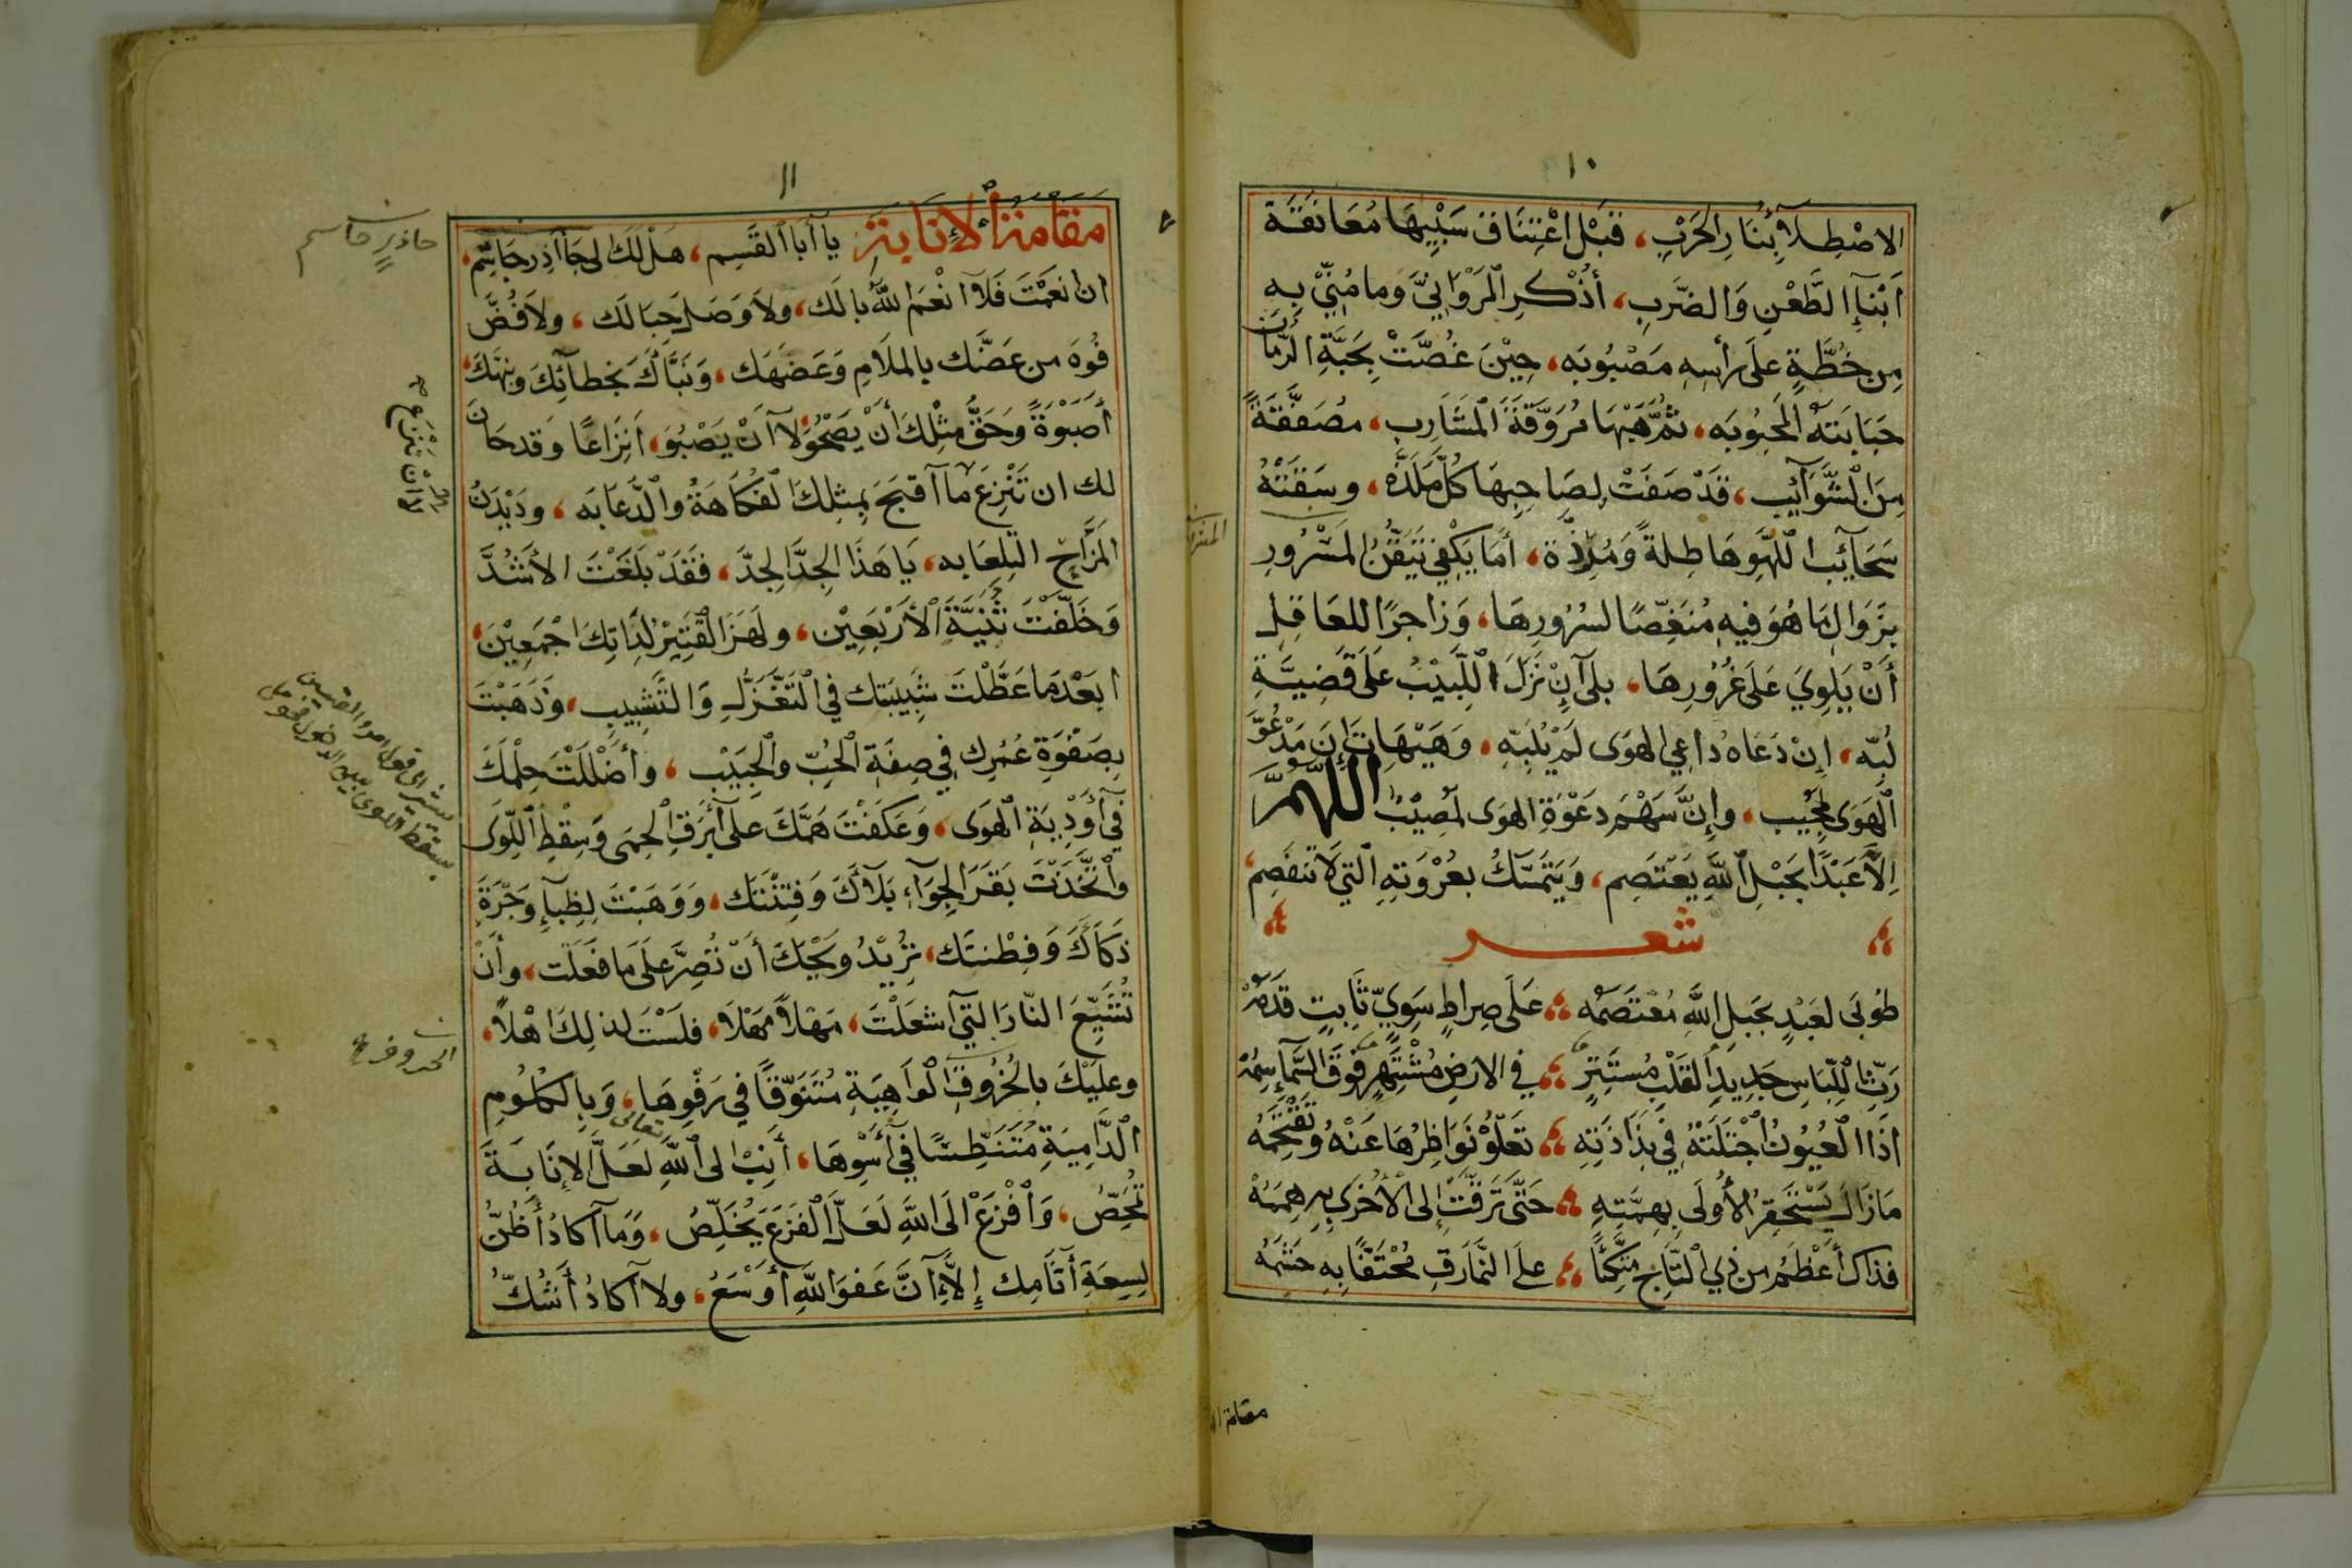 ١٠
الاصْطِلآءِ بِنَارِ الحَرْبِ، قَبْلَ اعْتِنَاقِ سَبْيِهَا مُعَانَقَةَ
اَبْنَآءِ الطَّعْنِ وَالضَّرْبِ، أُذْكُرِ المَرْوَانِيَّ وَمَا مُنِيَ بِهِ
مِن خُطَّةٍ عَلَى رأسِهِ مَصْبُوبَه، حِيْنَ غُصَّتْ بِحَبَّةِ الرُّمَّانِ
حَبَابَتَهُ المَحْبُوبَه، ثُمَّ هَبْهَا مُرَوَّقَةَ المَشَارِبِ، مُصَفَّقَةً
مِنَ الشَّوَآئِبِ، قَدْ صَفَتْ لِصَاحِبِهَا كُلُّ مَلَذَّه، وسَقَتْهُ
سَحَآئِبُ اللَّهْوِ هَاطِلةً وَمُرِذَّة، أَمَا يَكْفِي تَيَقُّنُ المَسْرُورِ
بِزَوَالِ مَا هُوَ فيهِ مُنَغِّصًا لسُرُورِهَا، وَزاجِرًا للعَاقِلِ
أَنْ يَلوِيَ عَلَى غُرُورِهَا، بلى اِنْ نَزَلَ اللَّبِيْبُ عَلَى قَضِيَّةِ
لُبِّه، اِنْ دَعَاهُ دُاعِي الهوَى لَمْ يُلَبِّه، وَهَيْهَاتَ إِنَّ مَدْعُوَّ
الْهَوَى لمُجِيب، وإِنَّ سَهْمَ دَعْوَةِ الهوَى لمُصِيْبٌ اللَّهُمَّ
اِلاَّ عَبْدًا بحَبْلِ اللّهِ يَعْتَصِم، وَيَتَمَسَّكُ بعُرْوَتِهِ التي لاَ تَنفَصِم،
شعر
طُوبَى لعَبْدٍ بحَبلِ اللّهِ مُعْتَصَمُه عَلَى صِراطٍ سَوِيٍّ ثَابِتٍ قَدَمُهْ
رَثِّ اللِّبَاسِ جَدِيدِ القَلْبِ مُستَتِرٍ في الارضِ مُشْتَهِرٍ فَوْقَ السَّمآءِ سِمُهْ
اَذَا العُيُونُ اجْتَلَتْهُ فِي بَذَاذَتِهِ تَعلُوْ نَوَاظِرُهَا عَنْهُ وَتَقْتَحِمُهْ
مَازَالَ يَسْتَحْقِرُ الأُولَى بِهِمَّتِهِ حَتَّى تَرَقَّتْ إِلَى الأُخْرَى بِهِ هِمَمُهْ
فذَاكَ أَعْظَمُ من ذِي التَّاجِ مُتَّكِئًا علَى النَّمَارقِ مُحْتَفًّا بِهِ حَشَمُهْ
١١
مَقَامَةُ الإِنَابَةِ يا أَبا القَسِم، هَلْ لَكَ لى جَآآذِر جَاسِم،
ان نَعِمْتَ فَلاَ انْعَمَ اللّهُ بالَك، ولاَ وَصَلَ حِبَالَك، ولاَ فُضَّ
فُوهَ مِن عَضَّك بالملاَمِ وَعَضَهَك، وَنَبَّأَكَ بخطآئِكَ ونبَّهَكَ،
أصَبْوَةً وَحَقُّ مِثْلِكَ أَنْ يَصْحُوَ لا أَنْ يَصْبُوَ، اَنِزَاعًا وَقدحَانَ
لك ان تَنْزِعَ مَا آ قبَحَ بمِثلِكَ الفكَاهَةُ والدُّعَابَه، ودَيْدَنُ
المَزَّاحِ التِلعَابه، يَا هَذَا الجِدَّ الجِدَّ، فقَدْ بَلَغْتَ الأَشُدَّ
وَخَلَّفْتَ ثَنِيَّةَ الأَرْبَعِيْن، ولَهَزَ القَتِيْرُ لِدَاتِكَ اجْمَعِيْنَ،
ابَعْدَمَا عَطَّلْتَ شَبِيبَتك في التَّغَزُّلِ وَالتَّشْبِيبِ، وَذَهَبْتَ
بِصَفْوَةِ عُمْرِك في صِفَةِ الحُبِّ والحَبِيْب، وأضْلَلتَ حِلْمَكَ
في أَوْدِيَةِ الْهَوَى، وَعَكَفْتَ هَمَّكَ عَلى أَبْرَقِ الحِمَى وَسِقْطِ اللِّوَى
واتَّخَذْتَ بَقَرَ الجِوَآءِ بَلاَءَكَ وَفِتْنَتَك، وَوَهَبْتَ لِظِبآءِ وَجْرَةَ
ذكَاكَ وَفِطْنتَك، تُرِيْدُ وَيْحَكَ أَنْ تُصِرَّ عَلَى مَا فَعَلت، وأَنْ
تُشَيِّعَ النَّارَ التي أشعَلْتَ، مَهْلاً مَهْلاً، فلَسْتَ لذلِكَ اهْلاً،
وعلَيْكَ بالخُرُوقِ الوَاهِيَةِ مُتَنَوِّقًا في رَفْوِهَا، وَبِالكُلُومِ
الدَّامِيَةِ مُتَنَطِّسًا في أَسْوِهَا، أَنِبْ الى اللّهِ تعالى لعَلَّ الإنَابَةَ
تُمَحِّصُ، وَافْزَعْ الَى اللّهِ لعَلَّ الفَزَعَ يُخَلِّصُ، وَمَا آكادُ أَظُنُّ
لِسِعَةِ أَثَامِك إِلاَّ أَنَّ عَفوَ اللّهِ أَوْسَعُ، ولا آكادُ أَشُكّ
جاذر جاسم
يشير الى قول امرء القيس
بسقط اللوى بين الدخول فحومل